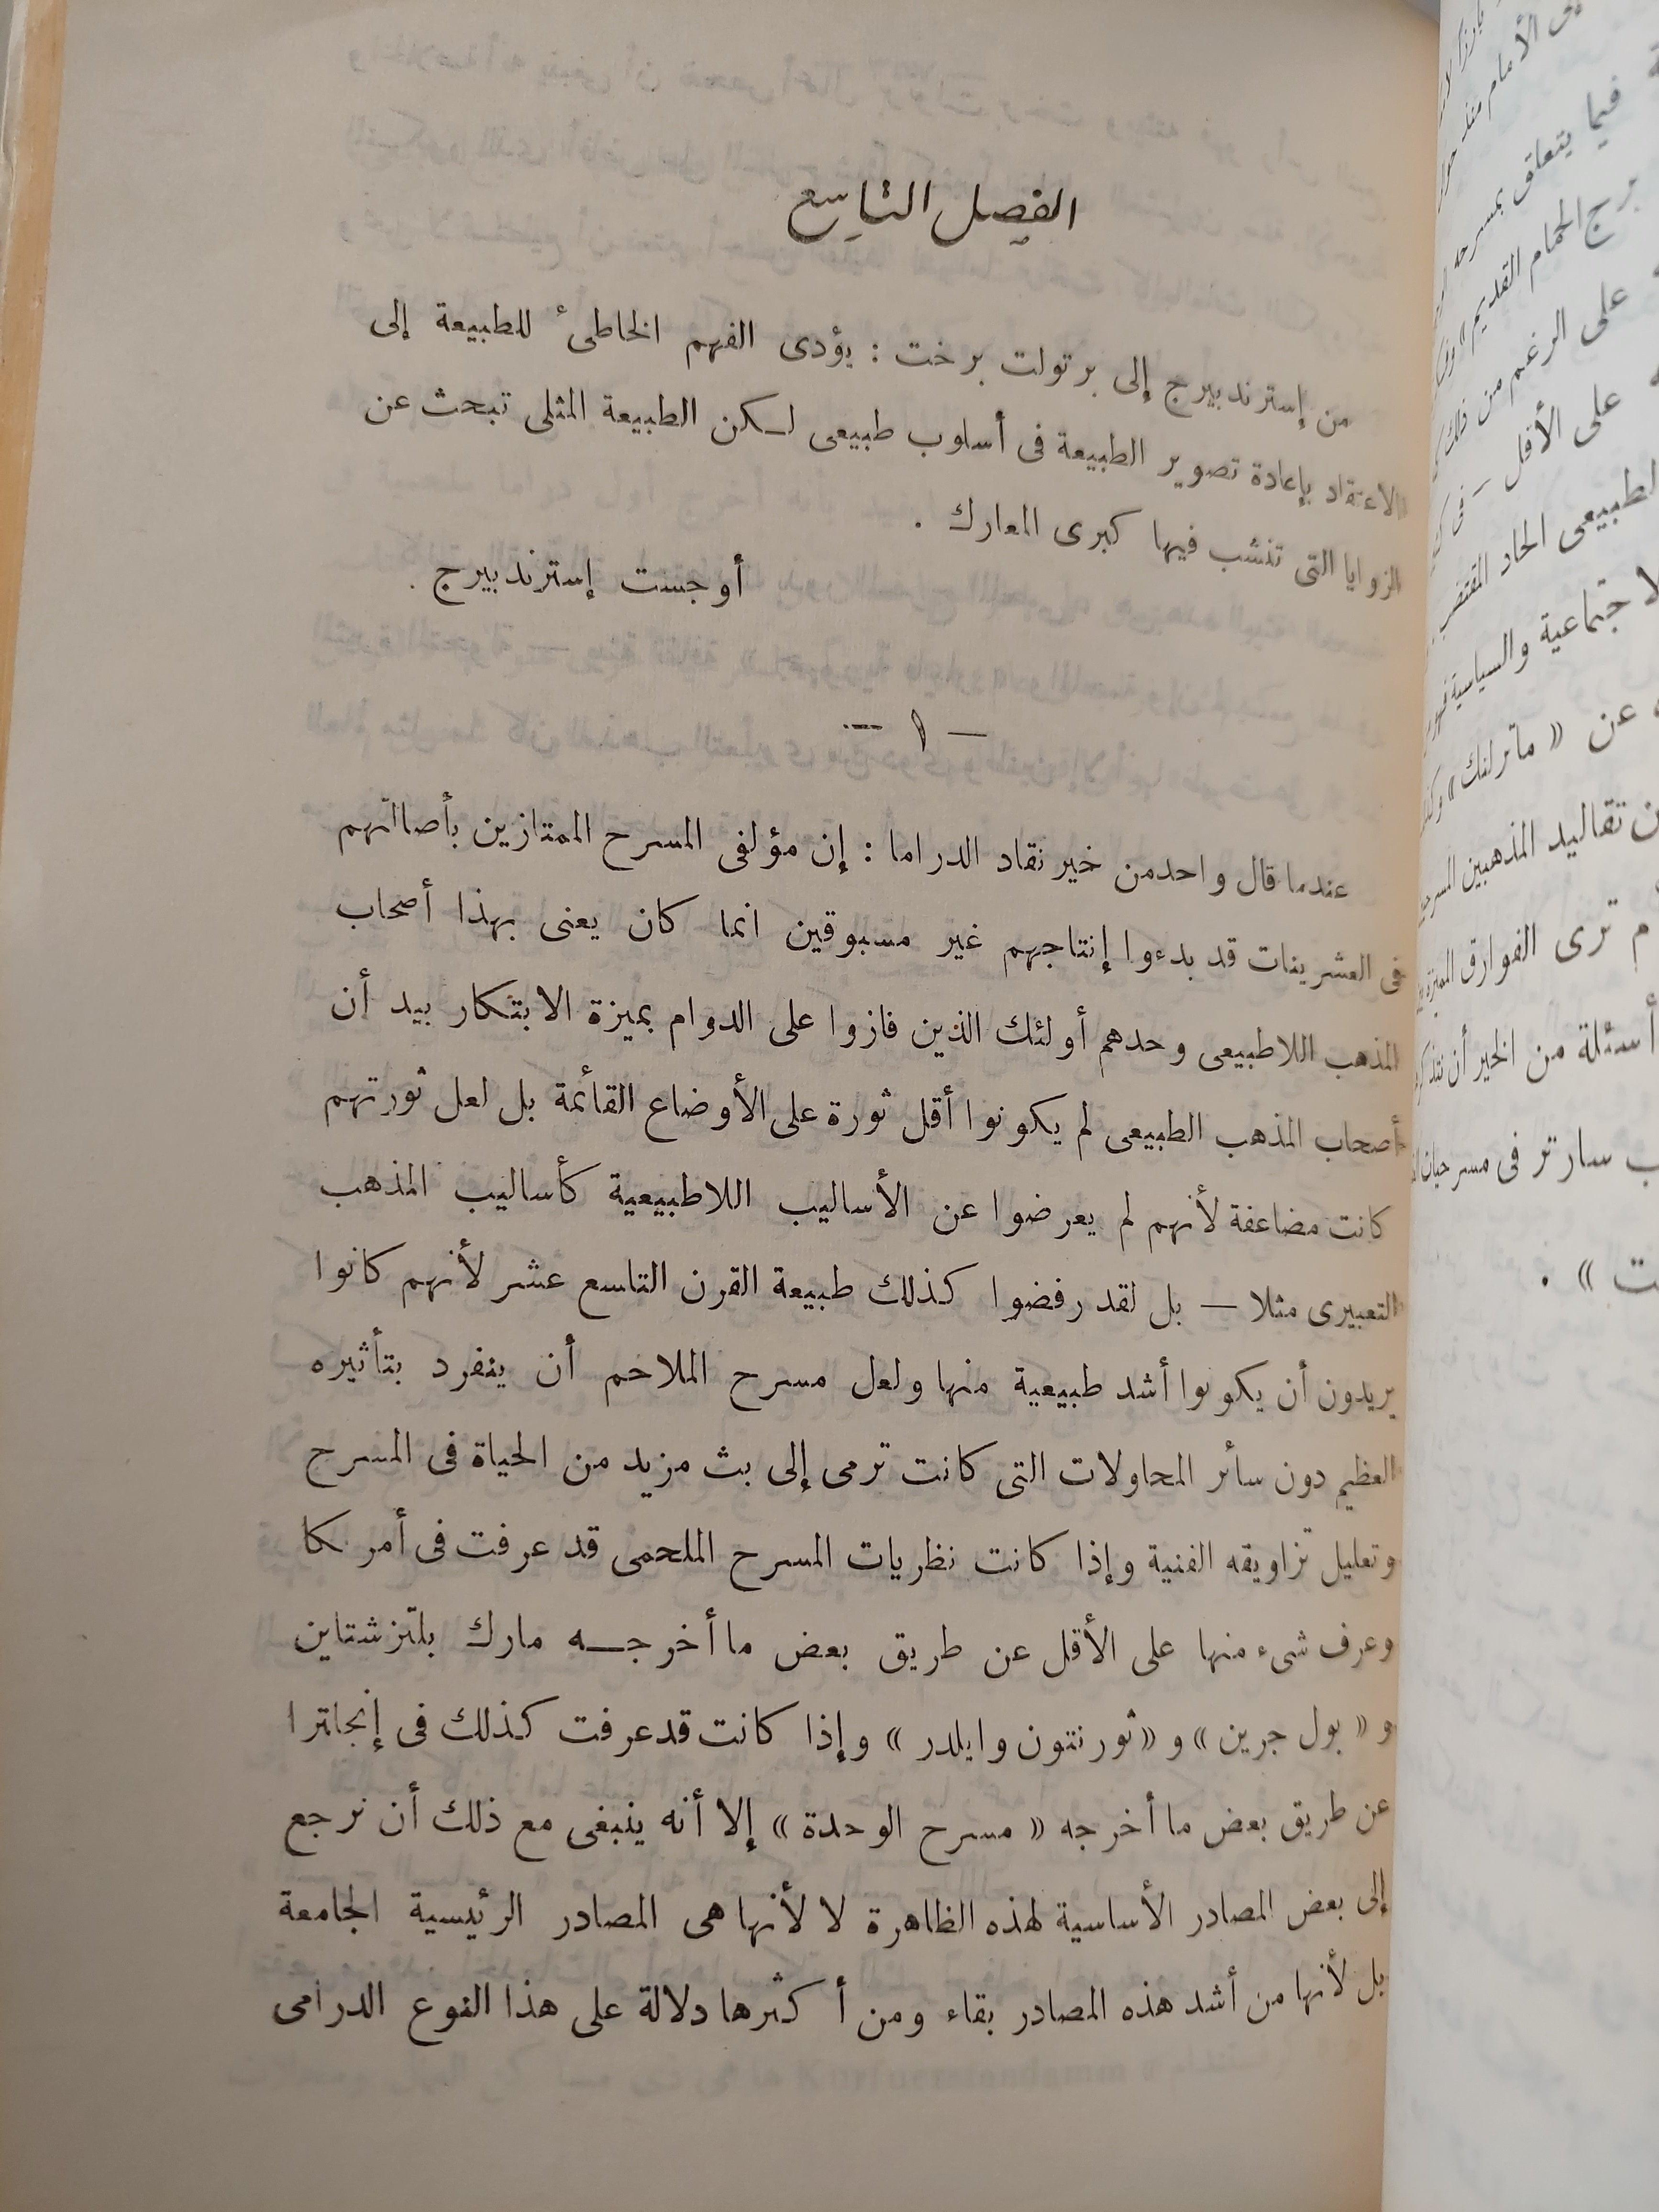 الفصل التاسع
من إسترندبيرج إلى برتولت برخت : يؤدى الفهم الخاطىء للطبيعة إلى
الاعتقاد بإعادة تصوير الطبيعة فى أسلوب طبيعى لكن الطبيعة المثلى تبحث عن
الزوايا التى تنشب فيها كبرى المعارك .
أوجست إسترندبيرج .
— ١ —
عندما قال واحدمن خير نقاد الدراما : إن مؤلفى المسرح الممتازين بأصالتهم
فى العشرينات قد بدءوا إنتاجهم غير مسبوقين انما كان يعنى بهذا أصحاب
المذهب اللاطبيعى وحدهم أولئك الذين فازوا على الدوام بميزة الابتكار بيد أن
أصحاب المذهب الطبيعى لم يكونوا أقل ثورة على الأوضاع القائمة بل لعل ثورتهم
كانت مضاعفة لأنهم لم يعرضوا عن الأساليب اللاطبيعية كأساليب المذهب
التعبيرى مثلا — بل لقد رفضوا كذلك طبيعة القرن التاسع عشر لأنهم كانوا
يريدون أن يكونوا أشد طبيعية منها ولعل مسرح الملاحم أن ينفرد بتأثيره
العظيم دون سائر المحاولات التى كانت ترمى إلى بث مزيد من الحياة فى المسرح
وتعليل تزاويقه الفنية وإذا كانت نظريات المسرح الملحمى قد عرفت فى أمريكا
وعرف شىء منها على الأقل عن طريق بعض ما أخرجـــه مارك بلتزشتاين
و « بول جرين » و « ثورنتون وايلدر » وإذا كانت قدعرفت كذلك فى إنجلترا
عن طريق بعض ما أخرجه « مسرح الوحدة » إلا أنه ينبغى مع ذلك أن نرجع
إلى بعض المصادر الأساسية لهذه الظاهرة لا لأنها هى المصادر الرئيسية الجامعة
بل لأنها من أشد هذه المصادر بقاء ومن أكثرها دلالة على هذا النوع الدرامى
فيما يتعلق بمسرحه
برج الحمام القديم »
على الرغم من ذلك
على الأقل — فى
الطبيعى الحاد
الاجتماعية والسياسية
عن « ماترلنك »
تقاليد المذهبين
ترى الفوارق
أسئلة من الخير أن
سارتر فى
» .